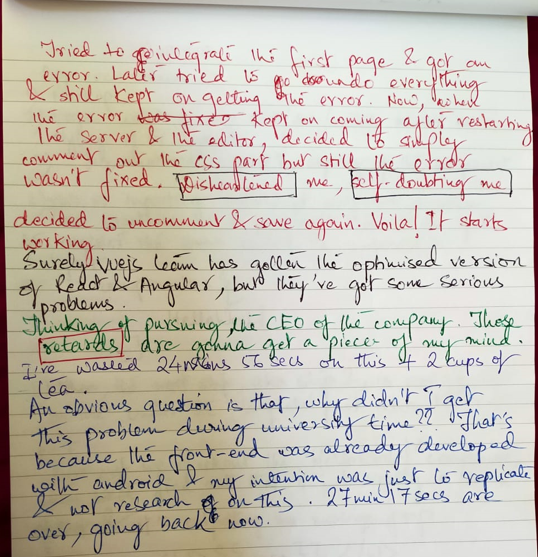 Tried to integrate the first page & got an
error. Later tried to undo everything
& still kept on getting the error. Now, when
the error was fixed kept on coming after restarting
the server & the editor, decided to simply
comment out the css part but still the error
wasn't fixed. Disheartened me, self-doubting me
decided to uncomment & save again. Voila! It starts
working.
Surely vuejs team has gotten the optimised version
of React & Angular, but they've got some serious
problems.
Thinking of pursuing the CEO of the company. Those
retards are gonna get a piece of my mind.
I've wasted 24mins 56 secs on this + 2 cups of
tea.
An obvious question is that, why didn't I get
this problem during university time?? That's
because the front-end was already developed
with android & my intention was just to replicate
& not research on this. 27min 17secs are
over, going back now.